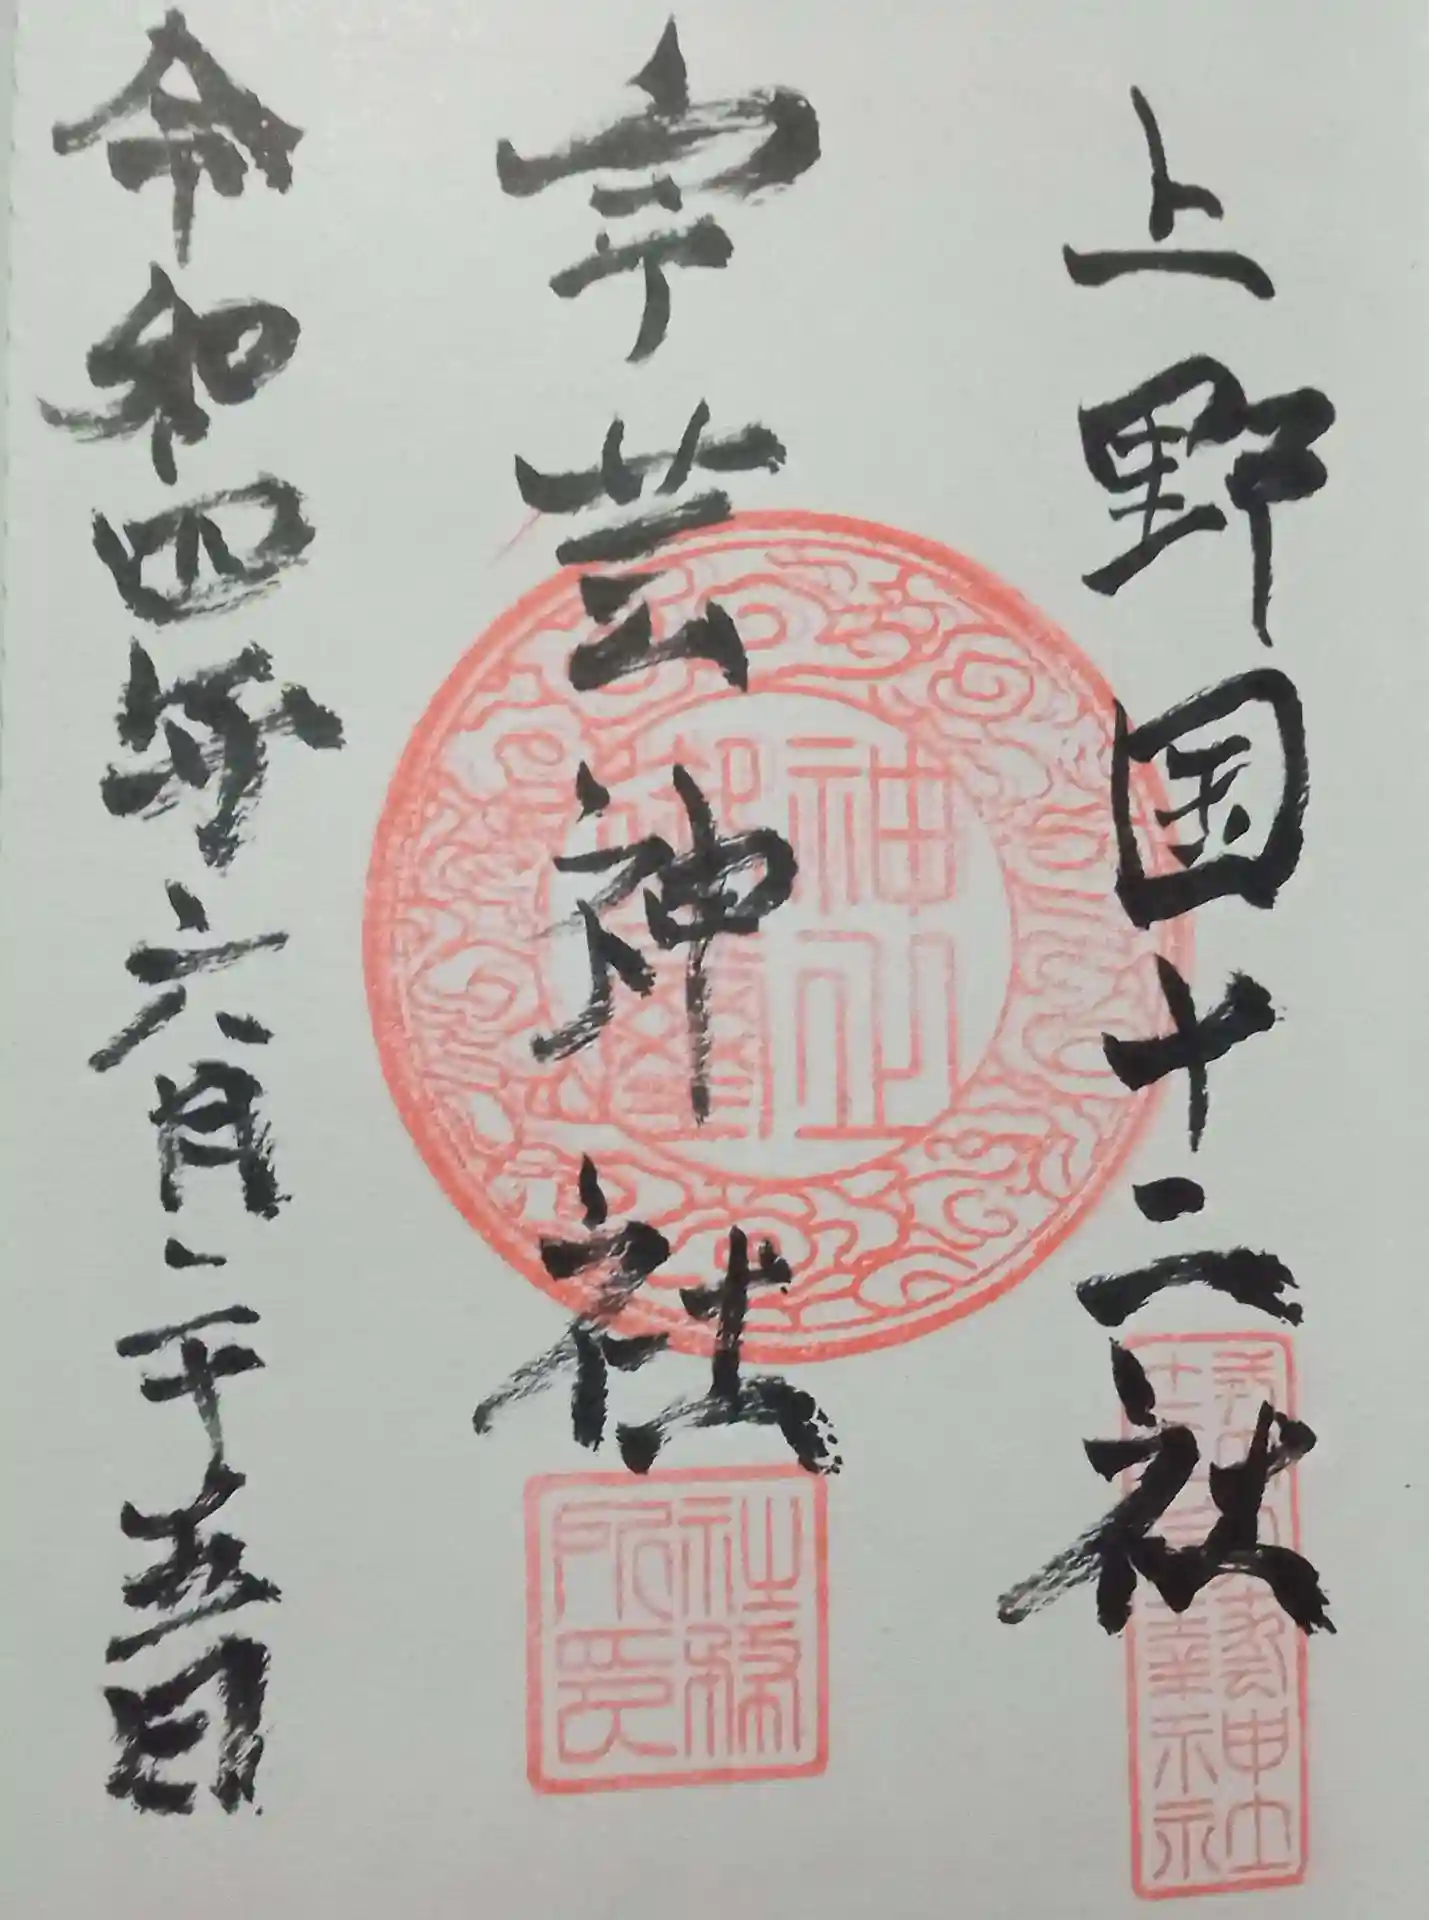 上野国十二社
宇芸神社
令和四年六月二十五日
社務
所印